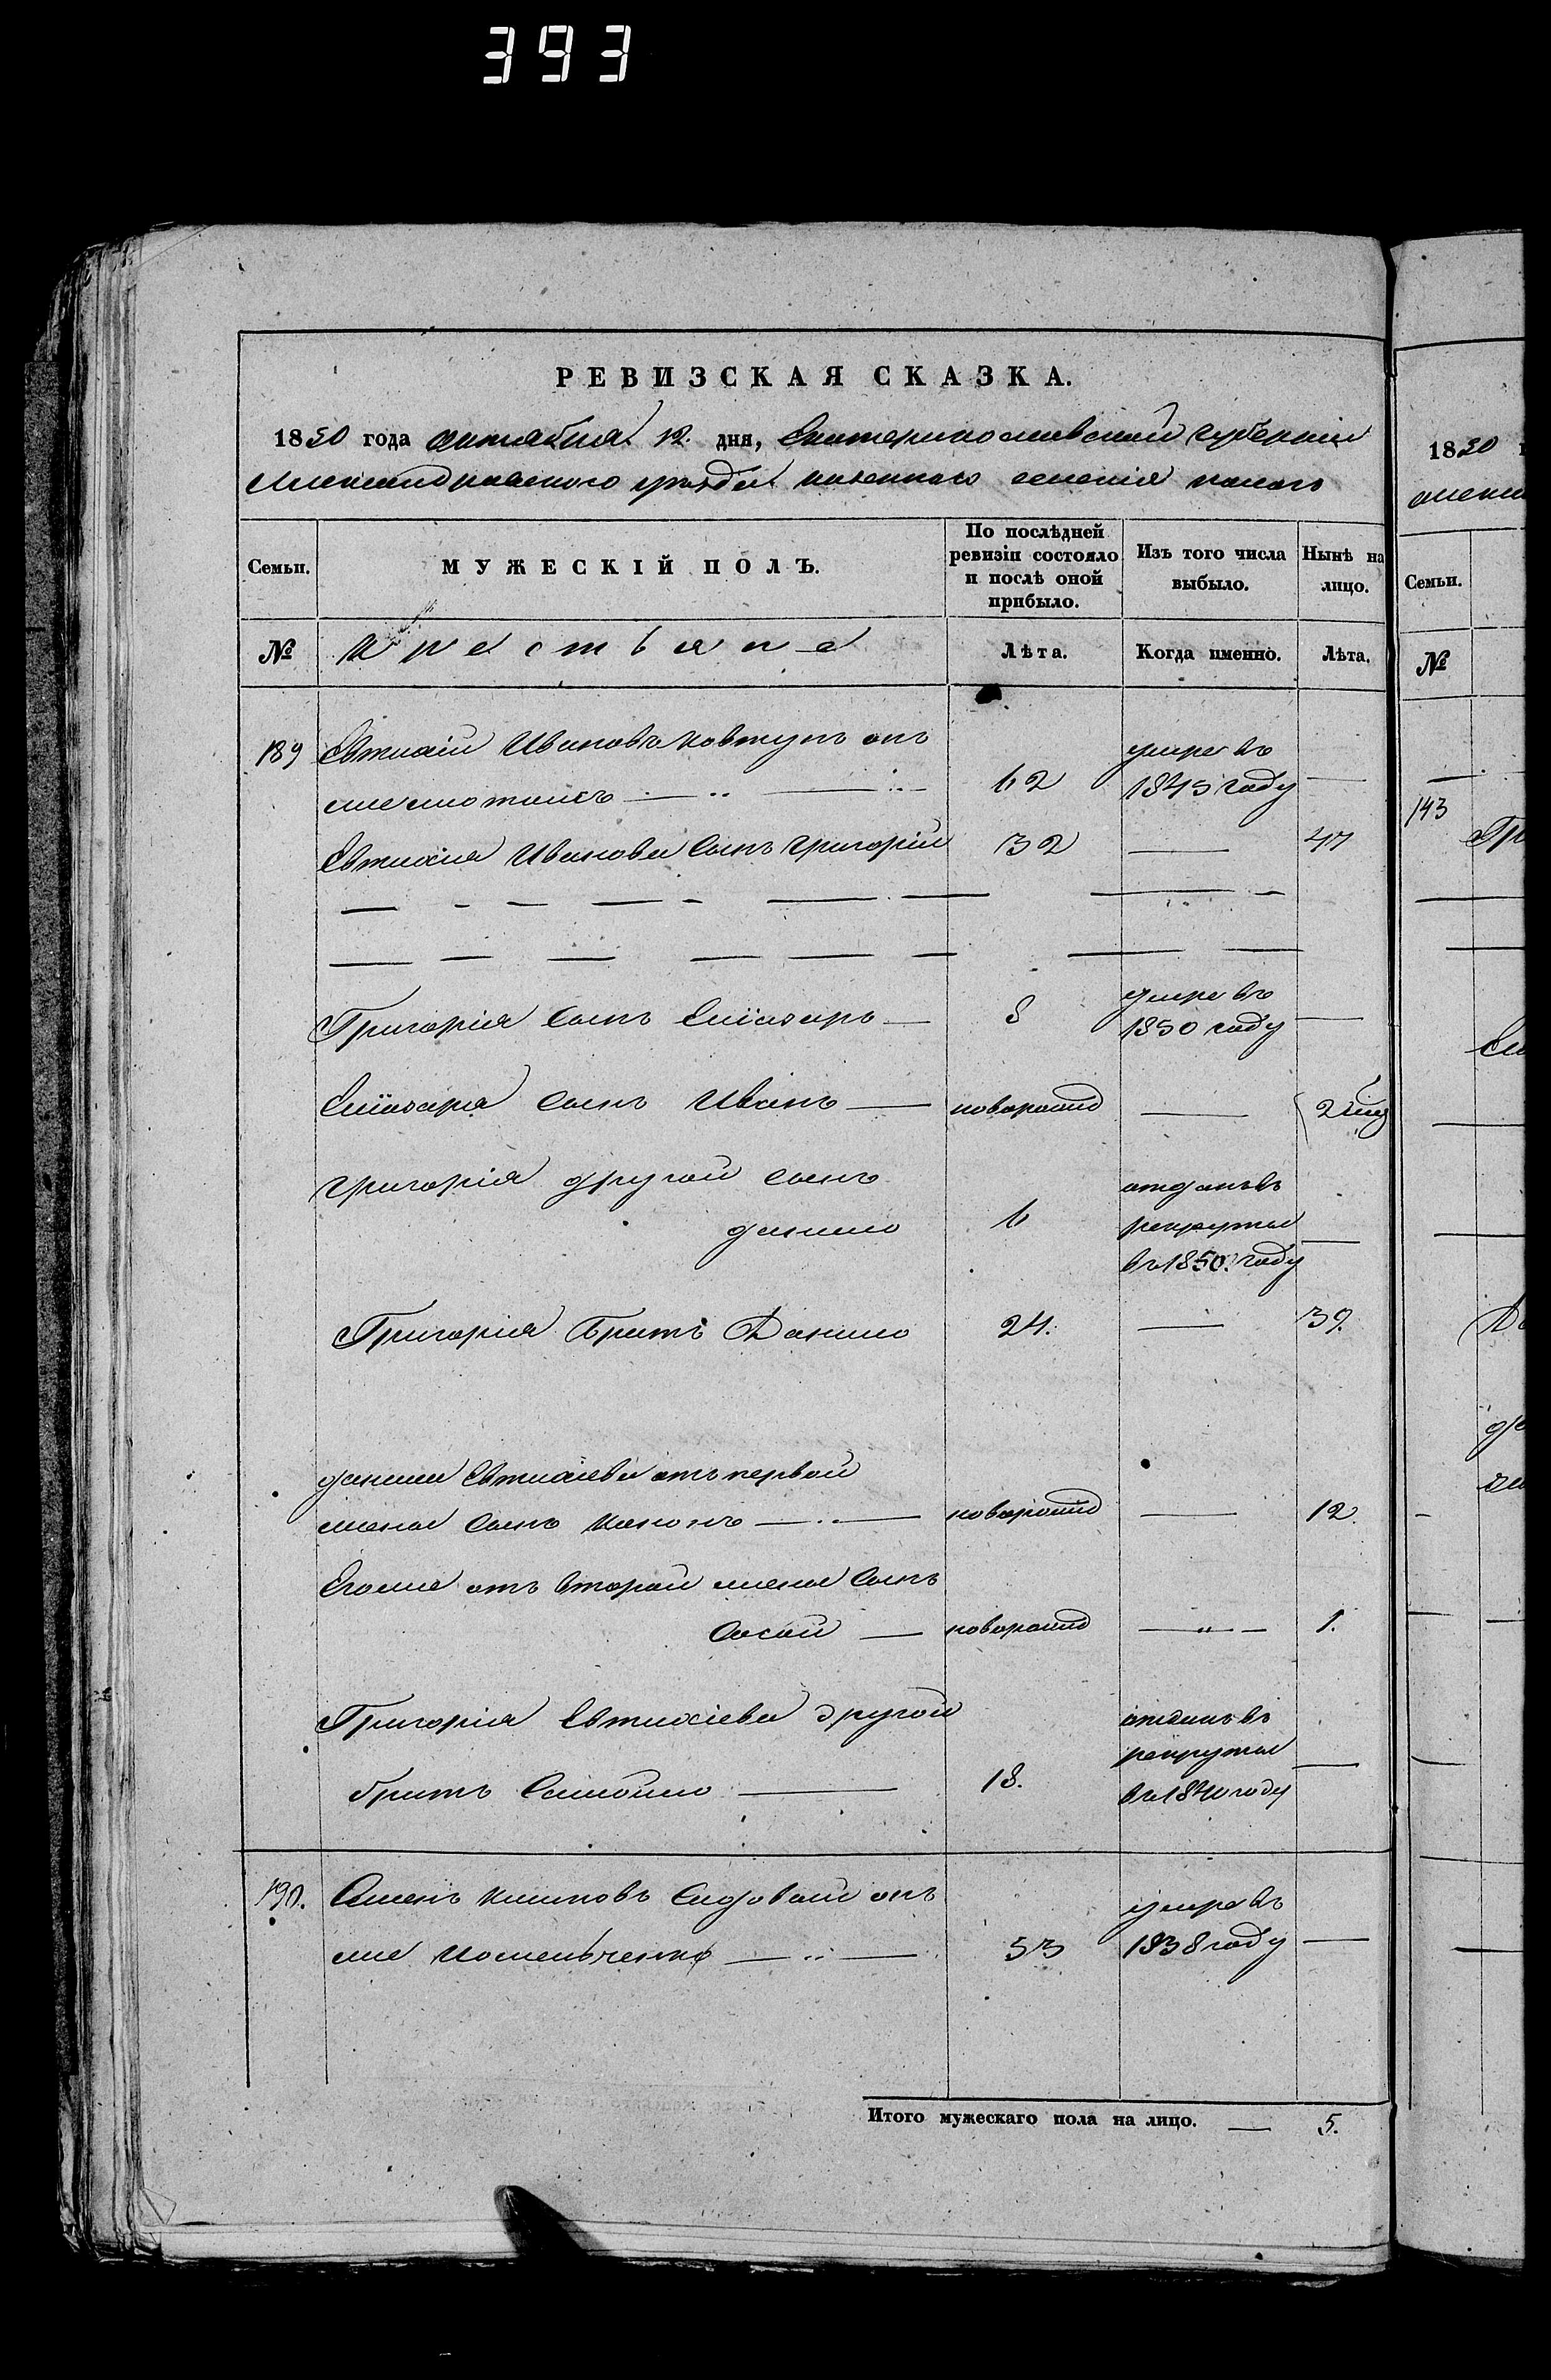 393
РЕВИЗСКАЯ СКАЗКА.
1850 года октября 12. дня, Екатеринославской губернии
Александровского уезда казенного селения
Семьи.
МУЖЕСКІЙ ПОЛЪ.
По послѣдней
ревизіи состояло
и послѣ оной
прибыло.
Изъ того числа
выбыло.
Нынѣ на
лицо.
№
крестьяне
Лѣта.
Когда именно.
Лѣта.
189 Евтихій Ивановъ Ковтунъ онъ умре въ
62 1845 году —
Евтихія Иванова сынъ Григорій 32 — 47
Григорія сынъ Еліазаръ — 8 умре въ
1850 году —
Еліазара сынъ Иванъ — новорожд —
Григорія другой сынъ
данило 6 отданъ въ
рекруты
въ 1850. году —
Григорія братъ Данило 24. — 39.
данила Евтихіева отъ первой
жены сынъ Кононъ — новорожд — 12.
Его же отъ второй жены сынъ
новорожд — 1.
Григорія Евтихіева другой
братъ Самойло — 18. отданъ въ
рекруты
въ 1840 году —
190. Семенъ Садовый онъ
же — 53 умре въ
1838 году —
Итого мужескаго пола на лицо. — 5.
1850
Семьи.
№
143